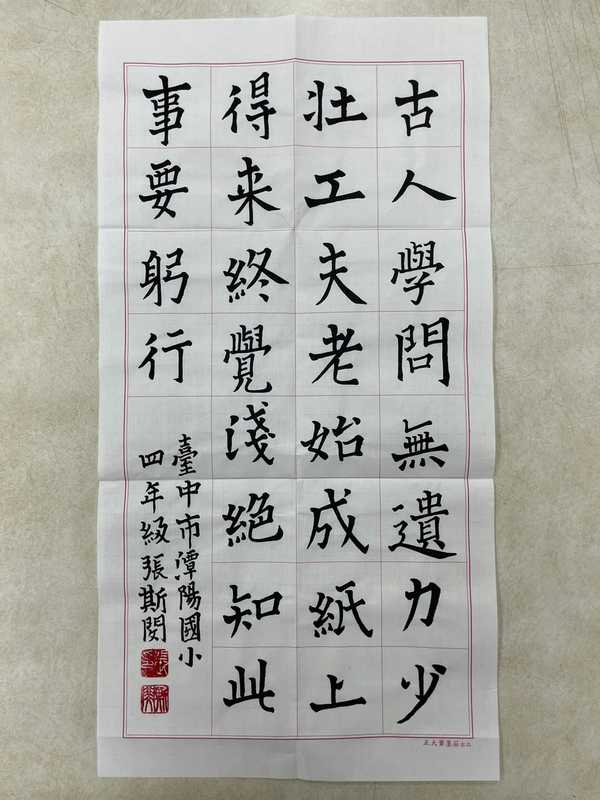 古人學問無遺力少
壯工夫老始成紙上
得来終覺淺絕知此
事要躬行
臺中市潭陽國小
四年級張斯閔